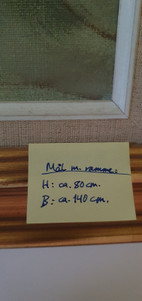 Mål m. ramme:
H: ca. 80 cm.
B: ca. 140 cm.